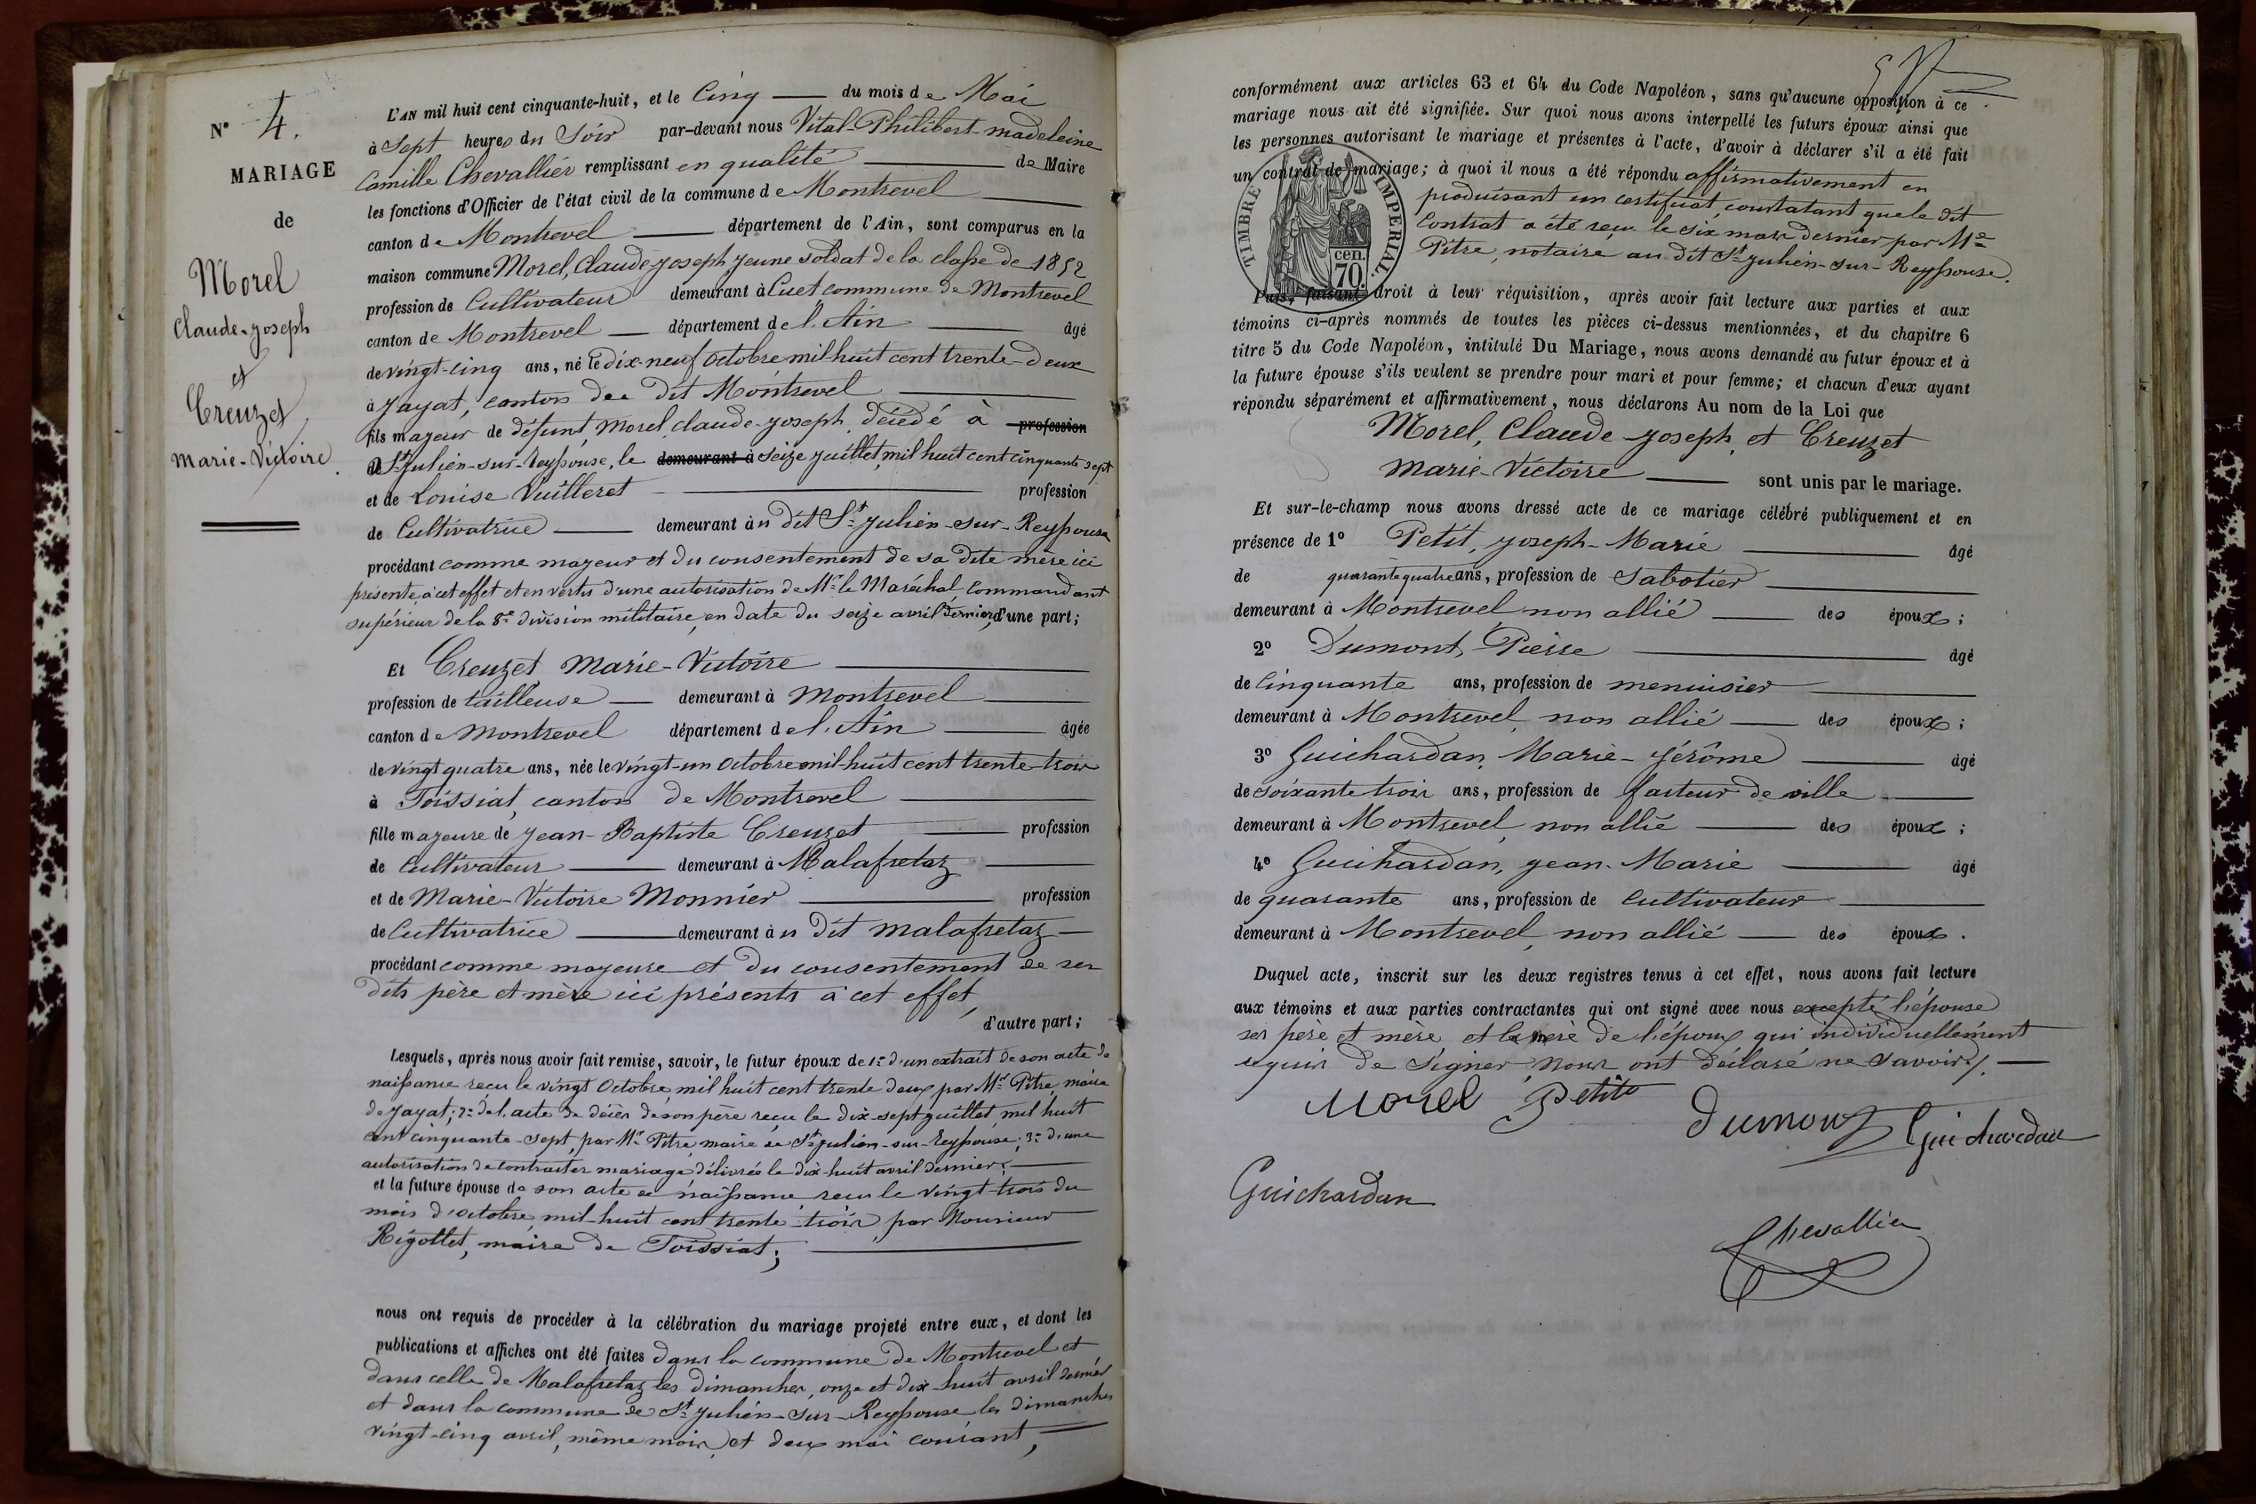 N° 4.
MARIAGE
de
Morel
Claude-Joseph
et
Creuzet
Marie-Victoire
L'AN mil huit cent cinquante-huit, et le Cinq du mois de Mai
à Sept heures du Soir par-devant nous Vital-Philibert-madeleine
Camille Chevallier remplissant en qualité de Maire
les fonctions d'Officier de l'état civil de la commune de Montrevel
canton de Montrevel département de l'Ain, sont comparus en la
maison commune Morel, Claude-Joseph jeune soldat de la classe de 1852
profession de Cultivateur demeurant à Cuet commune de Montrevel
canton de Montrevel département de l'Ain âgé
de vingt-cinq ans, né le dix-neuf Octobre mil huit cent trente-deux
à Jayat, canton du dit Montrevel
fils majeur de défunt Morel, Claude-Joseph, décédé à profession
de St Julien-sur-Reyssouse, le demeurant à seize juillet mil huit cent cinquante sept
et de Louise Vuilleret profession
de Cultivatrice demeurant à u dit St Julien-sur-Reyssouse
procédant comme majeur et du consentement de sa dite mère ici
présente à cet effet et en vertu d'une autorisation de Mr le Maréchal, Commandant
supérieur de la 8e division militaire, en date du seize avril dernier, d'une part;
Et Creuzet, Marie-Victoire
profession de tailleuse demeurant à Montrevel
canton de Montrevel département de l'Ain âgée
de vingt quatre ans, née le vingt-un Octobre mil huit cent trente-trois
à Foissiat, canton de Montrevel
fille majeure de Jean-Baptiste Creuzet profession
de Cultivateur demeurant à Malafretaz
et de Marie-Victoire Monnier profession
de Cultivatrice demeurant à u dit Malafretaz
procédant comme majeure et du consentement de ses
dits père et mère ici présents à cet effet,
d'autre part;
Lesquels, après nous avoir fait remise, savoir, le futur époux de 1° d'un extrait de son acte de
naissance reçu le vingt Octobre mil huit cent trente deux par Mr Pitre, maire
de Jayat; 2° de l'acte de décès de son père reçu le dix-sept juillet, mil huit
cent cinquante-sept, par Mr Pitre, maire de St Julien-sur-Reyssouse; 3° d'une
autorisation de contracter mariage délivrée le dix-huit avril dernier;
et la future épouse de son acte de naissance reçu le vingt-trois du
mois d'octobre mil huit cent trente trois, par Monsieur
Rigollet, maire de Foissiat;
nous ont requis de procéder à la célébration du mariage projeté entre eux, et dont les
publications et affiches ont été faites dans la commune de Montrevel et
dans celle de Malafretaz les dimanches, onze et dix-huit avril dernier
et dans la commune de St Julien-sur-Reyssouse les dimanches
vingt-cinq avril, même mois, et deux mai courant,
conformément aux articles 63 et 64 du Code Napoléon, sans qu'aucune opposition à ce
mariage nous ait été signifiée. Sur quoi nous avons interpellé les futurs époux ainsi que
les personnes autorisant le mariage et présentes à l'acte, d'avoir à déclarer s'il a été fait
un contrat de mariage; à quoi il nous a été répondu affirmativement en
produisant un certificat, constatant que le dit
Contrat a été reçu le six mars dernier par Me
Pitre, notaire au dit St Julien-sur-Reyssouse.
TIMBRE IMPERIAL.
cen.
70.
Puis, faisant droit à leur réquisition, après avoir fait lecture aux parties et aux
témoins ci-après nommés de toutes les pièces ci-dessus mentionnées, et du chapitre 6
titre 5 du Code Napoléon, intitulé Du Mariage, nous avons demandé au futur époux et à
la future épouse s'ils veulent se prendre pour mari et pour femme; et chacun d'eux ayant
répondu séparément et affirmativement, nous déclarons Au nom de la Loi que
Morel, Claude-Joseph et Creuzet
Marie-Victoire sont unis par le mariage.
Et sur-le-champ nous avons dressé acte de ce mariage célébré publiquement et en
présence de 1° Petit, Joseph-Marie âgé
de quarante quatre ans, profession de Sabotier
demeurant à Montrevel, non allié des époux;
2° Dumont, Pierre âgé
de Cinquante ans, profession de menuisier
demeurant à Montrevel, non allié des époux;
3° Guichardan, Marie-Jérôme âgé
de soixante trois ans, profession de facteur de ville
demeurant à Montrevel, non allié des époux;
4° Guichardan, Jean-Marie âgé
de quarante ans, profession de Cultivateur
demeurant à Montrevel, non allié des époux.
Duquel acte, inscrit sur les deux registres tenus à cet effet, nous avons fait lecture
aux témoins et aux parties contractantes qui ont signé avec nous excepté l'épouse
ses père et mère et la mère de l'époux qui individuellement
requis de signer, nous ont déclaré ne savoir.
Morel Petit
Dumont Guichardan
Guichardan
Chevallier